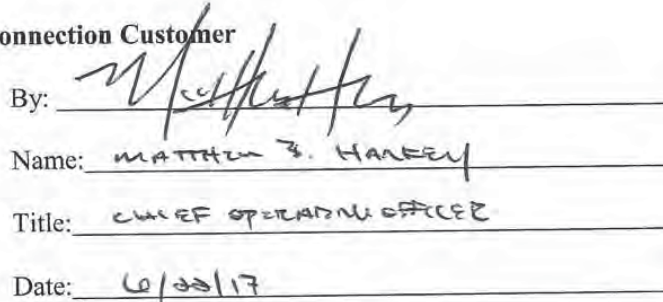 onnection Customer
By:
Name: MATTHEW
Title: CHIEF OPERATING OFFICER
Date: 6/22/17